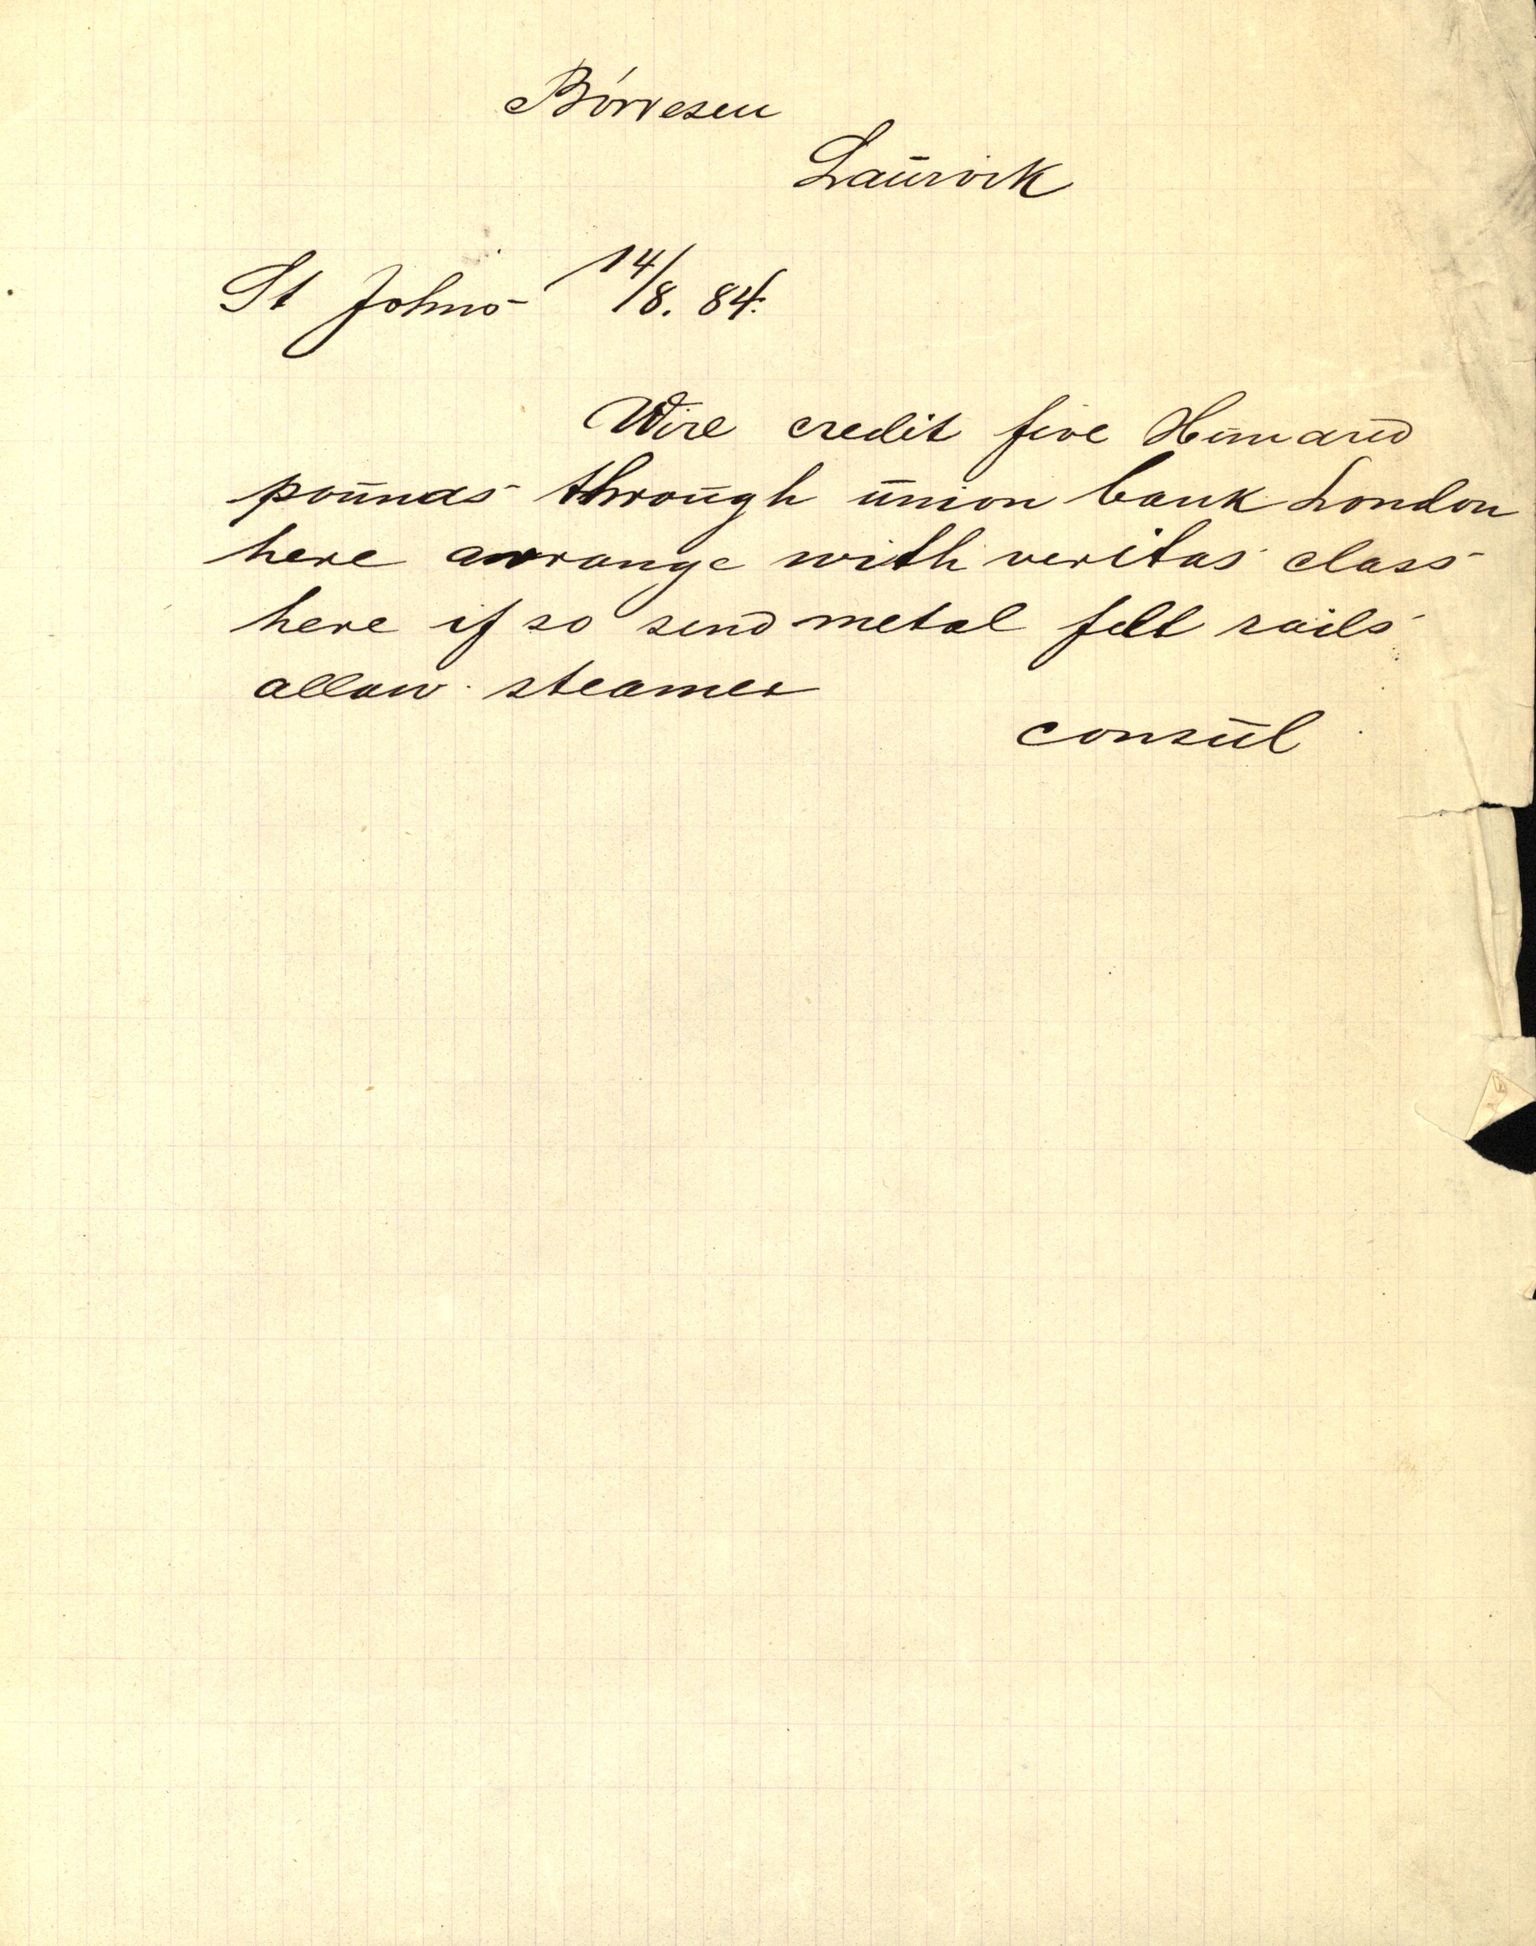 Börresen
Laurvik
St Johns 14/8. 84.
Wire credit five Hundred
pounds through union bank London
here arrange with veritas class
here if so send metal felt sails
allow steamer
consul